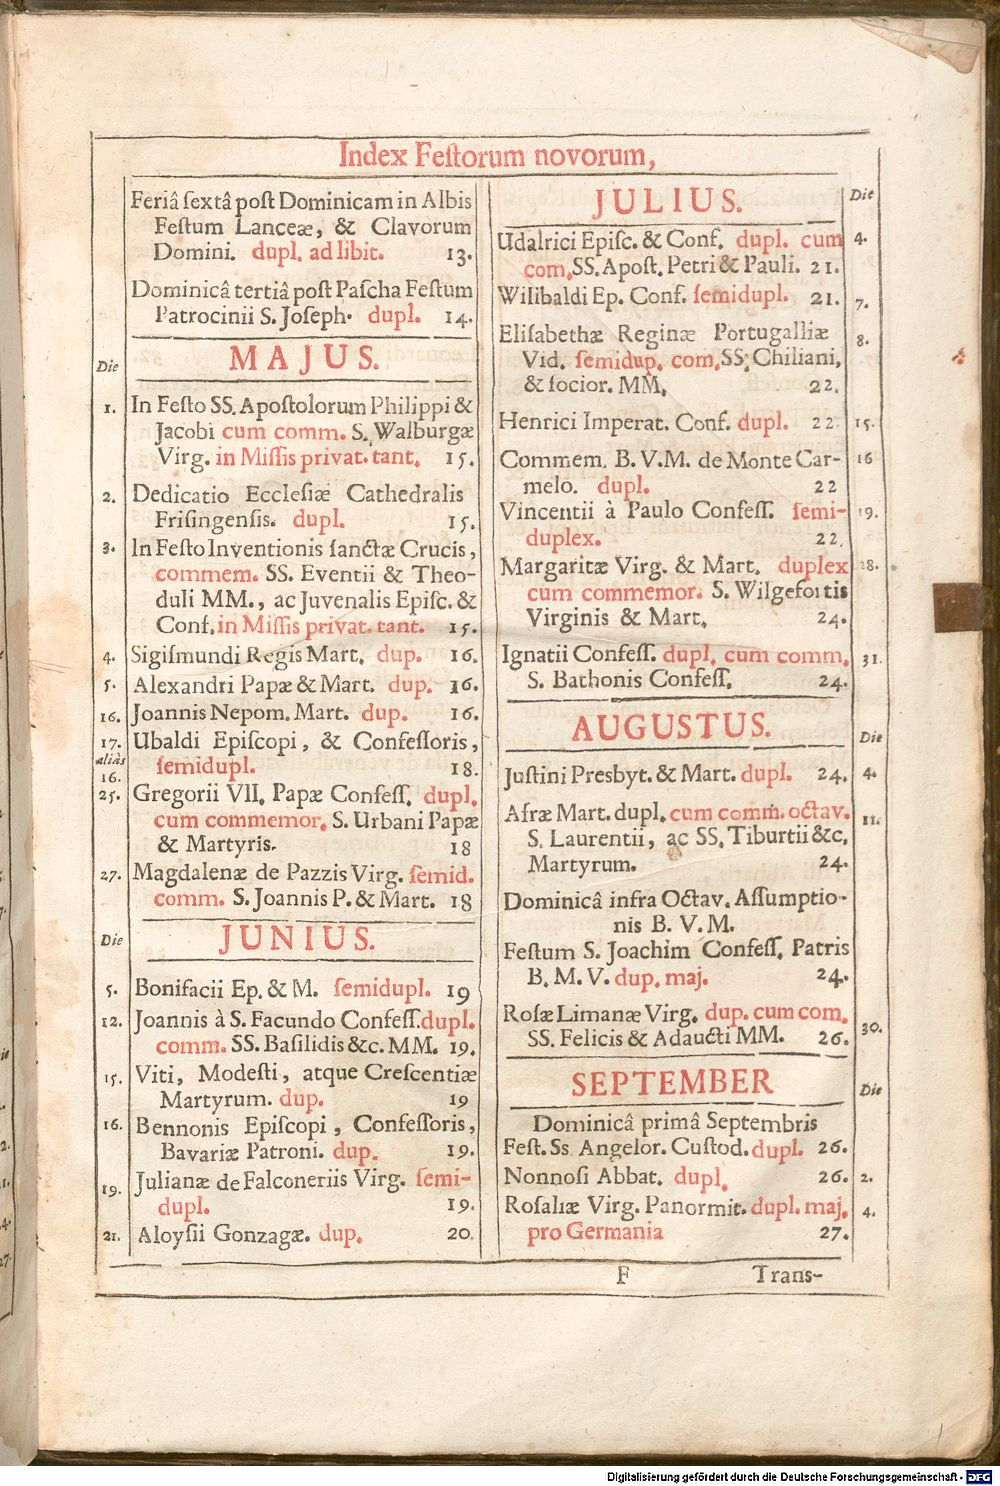 Index Festorum novorum,
Feriâ sextâ post Dominicam in Albis
Festum Lanceæ, & Clavorum
Domini. dupl. ad libit. 13.
Dominicâ tertiâ post Pascha Festum
Patrocinii S. Joseph. dupl. 14.
Die MAJUS.
1. In Festo SS. Apostolorum Philippi &
Jacobi cum comm. S. Walburgæ
Virg. in Missis privat. tant. 15.
2. Dedicatio Ecclesiæ Cathedralis
Frisingensis. dupl. 15.
3. In Festo Inventionis sanctæ Crucis,
commem. SS. Eventii & Theo-
duli MM., ac Juvenalis Episc. &
Conf. in Missis privat. tant. 15.
4. Sigismundi Regis Mart. dup. 16.
5. Alexandri Papæ & Mart. dup. 16.
16. Joannis Nepom. Mart. dup. 16.
17. Ubaldi Episcopi, & Confessoris,
aliàs 16. semidupl. 18.
25. Gregorii VII. Papæ Confess. dupl.
cum commemor. S. Urbani Papæ
& Martyris. 18
27. Magdalenæ de Pazzis Virg. semid.
comm. S. Joannis P. & Mart. 18
Die JUNIUS.
5. Bonifacii Ep. & M. semidupl. 19
12. Joannis à S. Facundo Confess. dupl.
comm. SS. Basilidis &c. MM. 19.
15. Viti, Modesti, atque Crescentiæ
Martyrum. dup. 19
16. Bennonis Episcopi, Confessoris,
Bavariæ Patroni. dup. 19.
19. Julianæ de Falconeriis Virg. semi-
dupl. 19.
21. Aloysii Gonzagæ. dup. 20.
JULIUS. Die
Udalrici Episc. & Conf. dupl. cum 4.
com. SS. Apost. Petri & Pauli. 21.
Wilibaldi Ep. Conf. semidupl. 21. 7.
Elisabethæ Reginæ Portugalliæ 8.
Vid. semidup. com. SS. Chiliani,
& socior. MM. 22.
Henrici Imperat. Conf. dupl. 22 15.
Commem. B. V. M. de Monte Car- 16
melo. dupl. 22
Vincentii à Paulo Confess. semi- 19.
duplex. 22.
Margaritæ Virg. & Mart. duplex 28.
cum commemor. S. Wilgefortis
Virginis & Mart. 24.
Ignatii Confess. dupl. cum comm. 31.
S. Bathonis Confess. 24.
AUGUSTUS. Die
Justini Presbyt. & Mart. dupl. 24. 4.
Afræ Mart. dupl. cum comm. octav. 11.
S. Laurentii, ac SS. Tiburtii &c.
Martyrum. 24.
Dominicâ infra Octav. Assumptio-
nis B. V. M.
Festum S. Joachim Confess. Patris
B. M. V. dup. maj. 24.
Rosæ Limanæ Virg. dup. cum com. 30.
SS. Felicis & Adaucti MM. 26.
SEPTEMBER Die
Dominicâ primâ Septembris
Fest. Ss Angelor. Custod. dupl. 26.
Nonnosi Abbat. dupl. 26. 2.
Rosaliæ Virg. Panormit. dupl. maj. 4.
pro Germania 27.
F Trans-
Digitalisierung gefördert durch die Deutsche Forschungsgemeinschaft - DFG